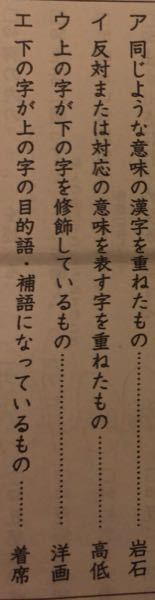 ア 同じような意味の漢字を重ねたもの……………岩石
イ 反対または対応の意味を表す字を重ねたもの……………高低
ウ 上の字が下の字を修飾しているもの……………洋画
エ 下の字が上の字の目的語・補語になっているもの……………着席